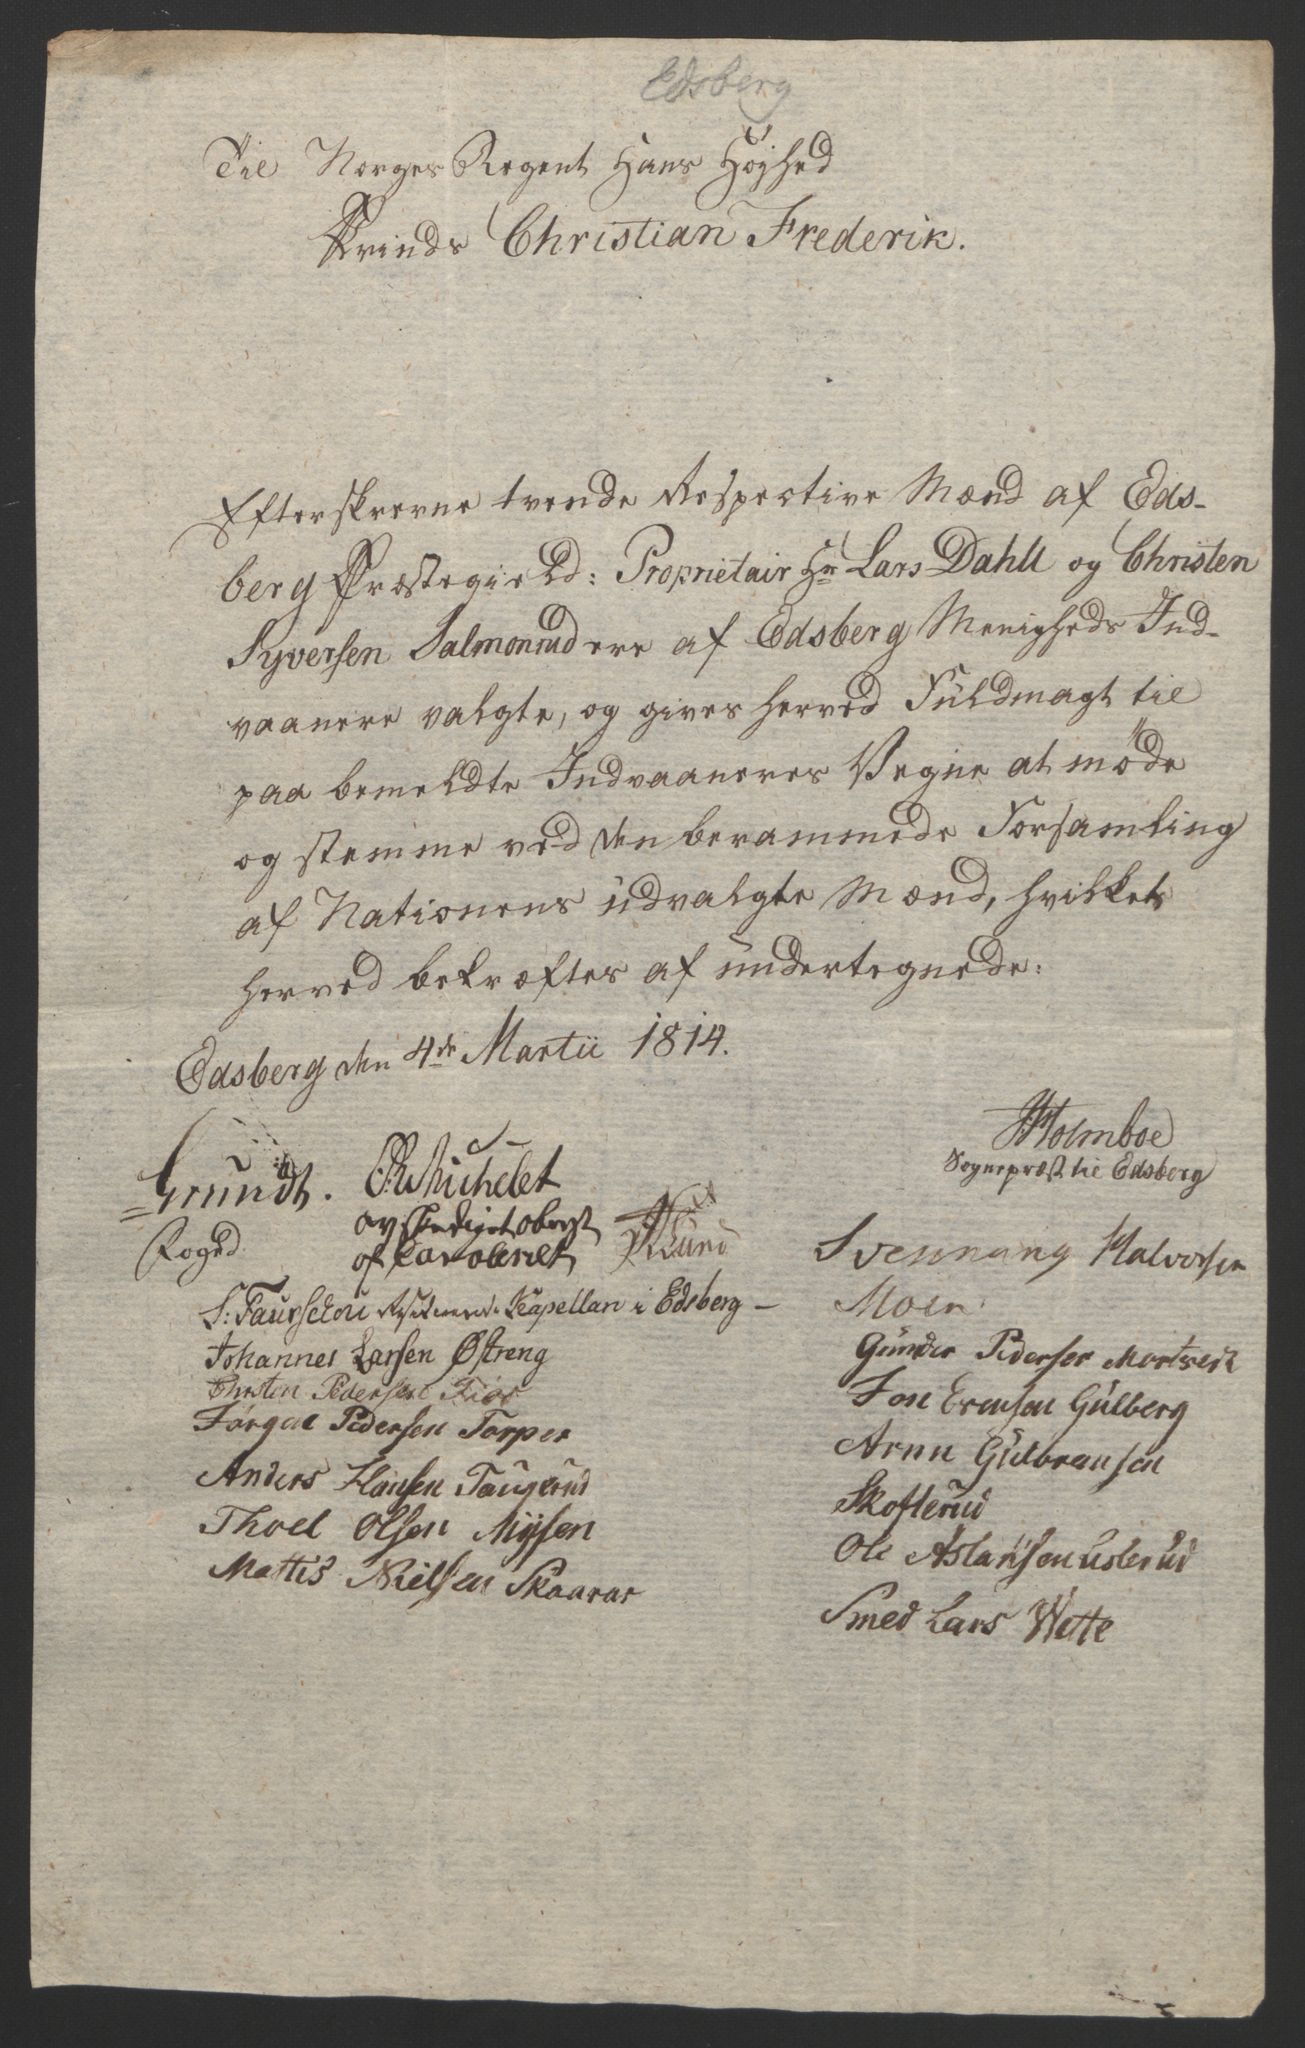 Edsberg
Til Norges Regent Hans Højhed
Prinds Christian Frederik.
Efterskrevne tvende Respective Mænd af Eds-
berg Præstegield: Proprietair Hr Lars Dahll og Christen
Syversen Salmonrud ere af Edsberg Menigheds Ind-
vaanere valgte, og gives herved Fuldmagt til
paa bemeldte Indvaaneres Vegne at møde
og stemme ved den berammede Forsamling
af Nationens udvalgte Mænd, hvilket
herved bekræftes af undertegnede:
Edsberg den 4de Martii 1814.
Holmboe
Sognepræst til Edsberg
Grundt.
Foged
Michelet
afskediget oberst
af Cavaleriet
Lund
S: Faurschou Residerende Kapellan i Edsberg
Johannes Larsen Østreng
Christen Pedersen
Jørgen Pedersen Torper
Anders Hansen Taugerud
Thoel Olsen Mysen
Mattis Nielsen Skaarar
Svennung Halvorsen
Moen
Gunder Pedersen
Jon Evensen Gulberg
Arnn Gulbransen
Skofterud
Ole Aslaksen Usterud
Smed Lars Wette